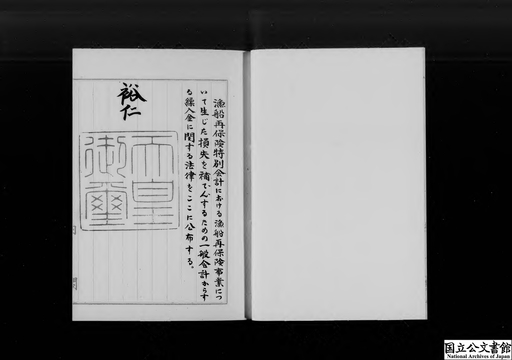 漁船再保険特別会計における漁船再保険事業につ
いて生じた損失を補てんするための一般会計からす
る繰入金に関する法律をここに公布する。
裕仁
天皇
御璽
国立公文書館
National Archives of Japan